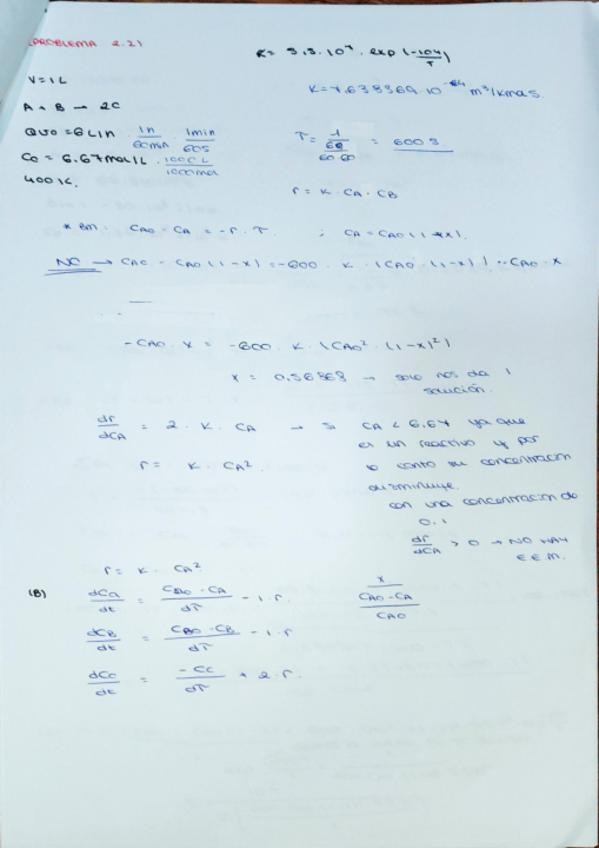 PROBLEMA 2.21
K = 3,3.10⁷ . exp (-104/T)
V = 1 L
K = 7,638369.10 m³/kmols.
A + B → 2C
Qvo = 6 L/n . 1n/60min . 1min/60s
T = 1/(6/60.60) = 600 s
Co = 6.67 mol/L . 1000L/1000mol
r = K . CA . CB
400 K.
* BM: CAO - CA = -r . T. ; CA = CAO (1-x).
NC → CAO - CAO (1-x) = -600 . K . (CAO . (1-x)) . CAO . x
-CAO . x = -600 . K . (CAO² . (1-x)²)
x = 0,56868 → solo nos da 1
solución.
dr/dCA = 2 . K . CA → Si CA < 6,67 ya que
es un reactivo y por
r = K . CA².
lo tanto su concentracion
disminuye.
con una concentracion de
0.1
dr/dCA > 0 → NO HAY
E.E.M.
r = K . CA²
(B) dCa/dt = (CAO - CA)/dT - 1 . r.
x
(CAO - CA)/CAO
dCB/dt = (CBO - CB)/dT - 1 . r
dCc/dt = -Cc/dT + 2 . r.